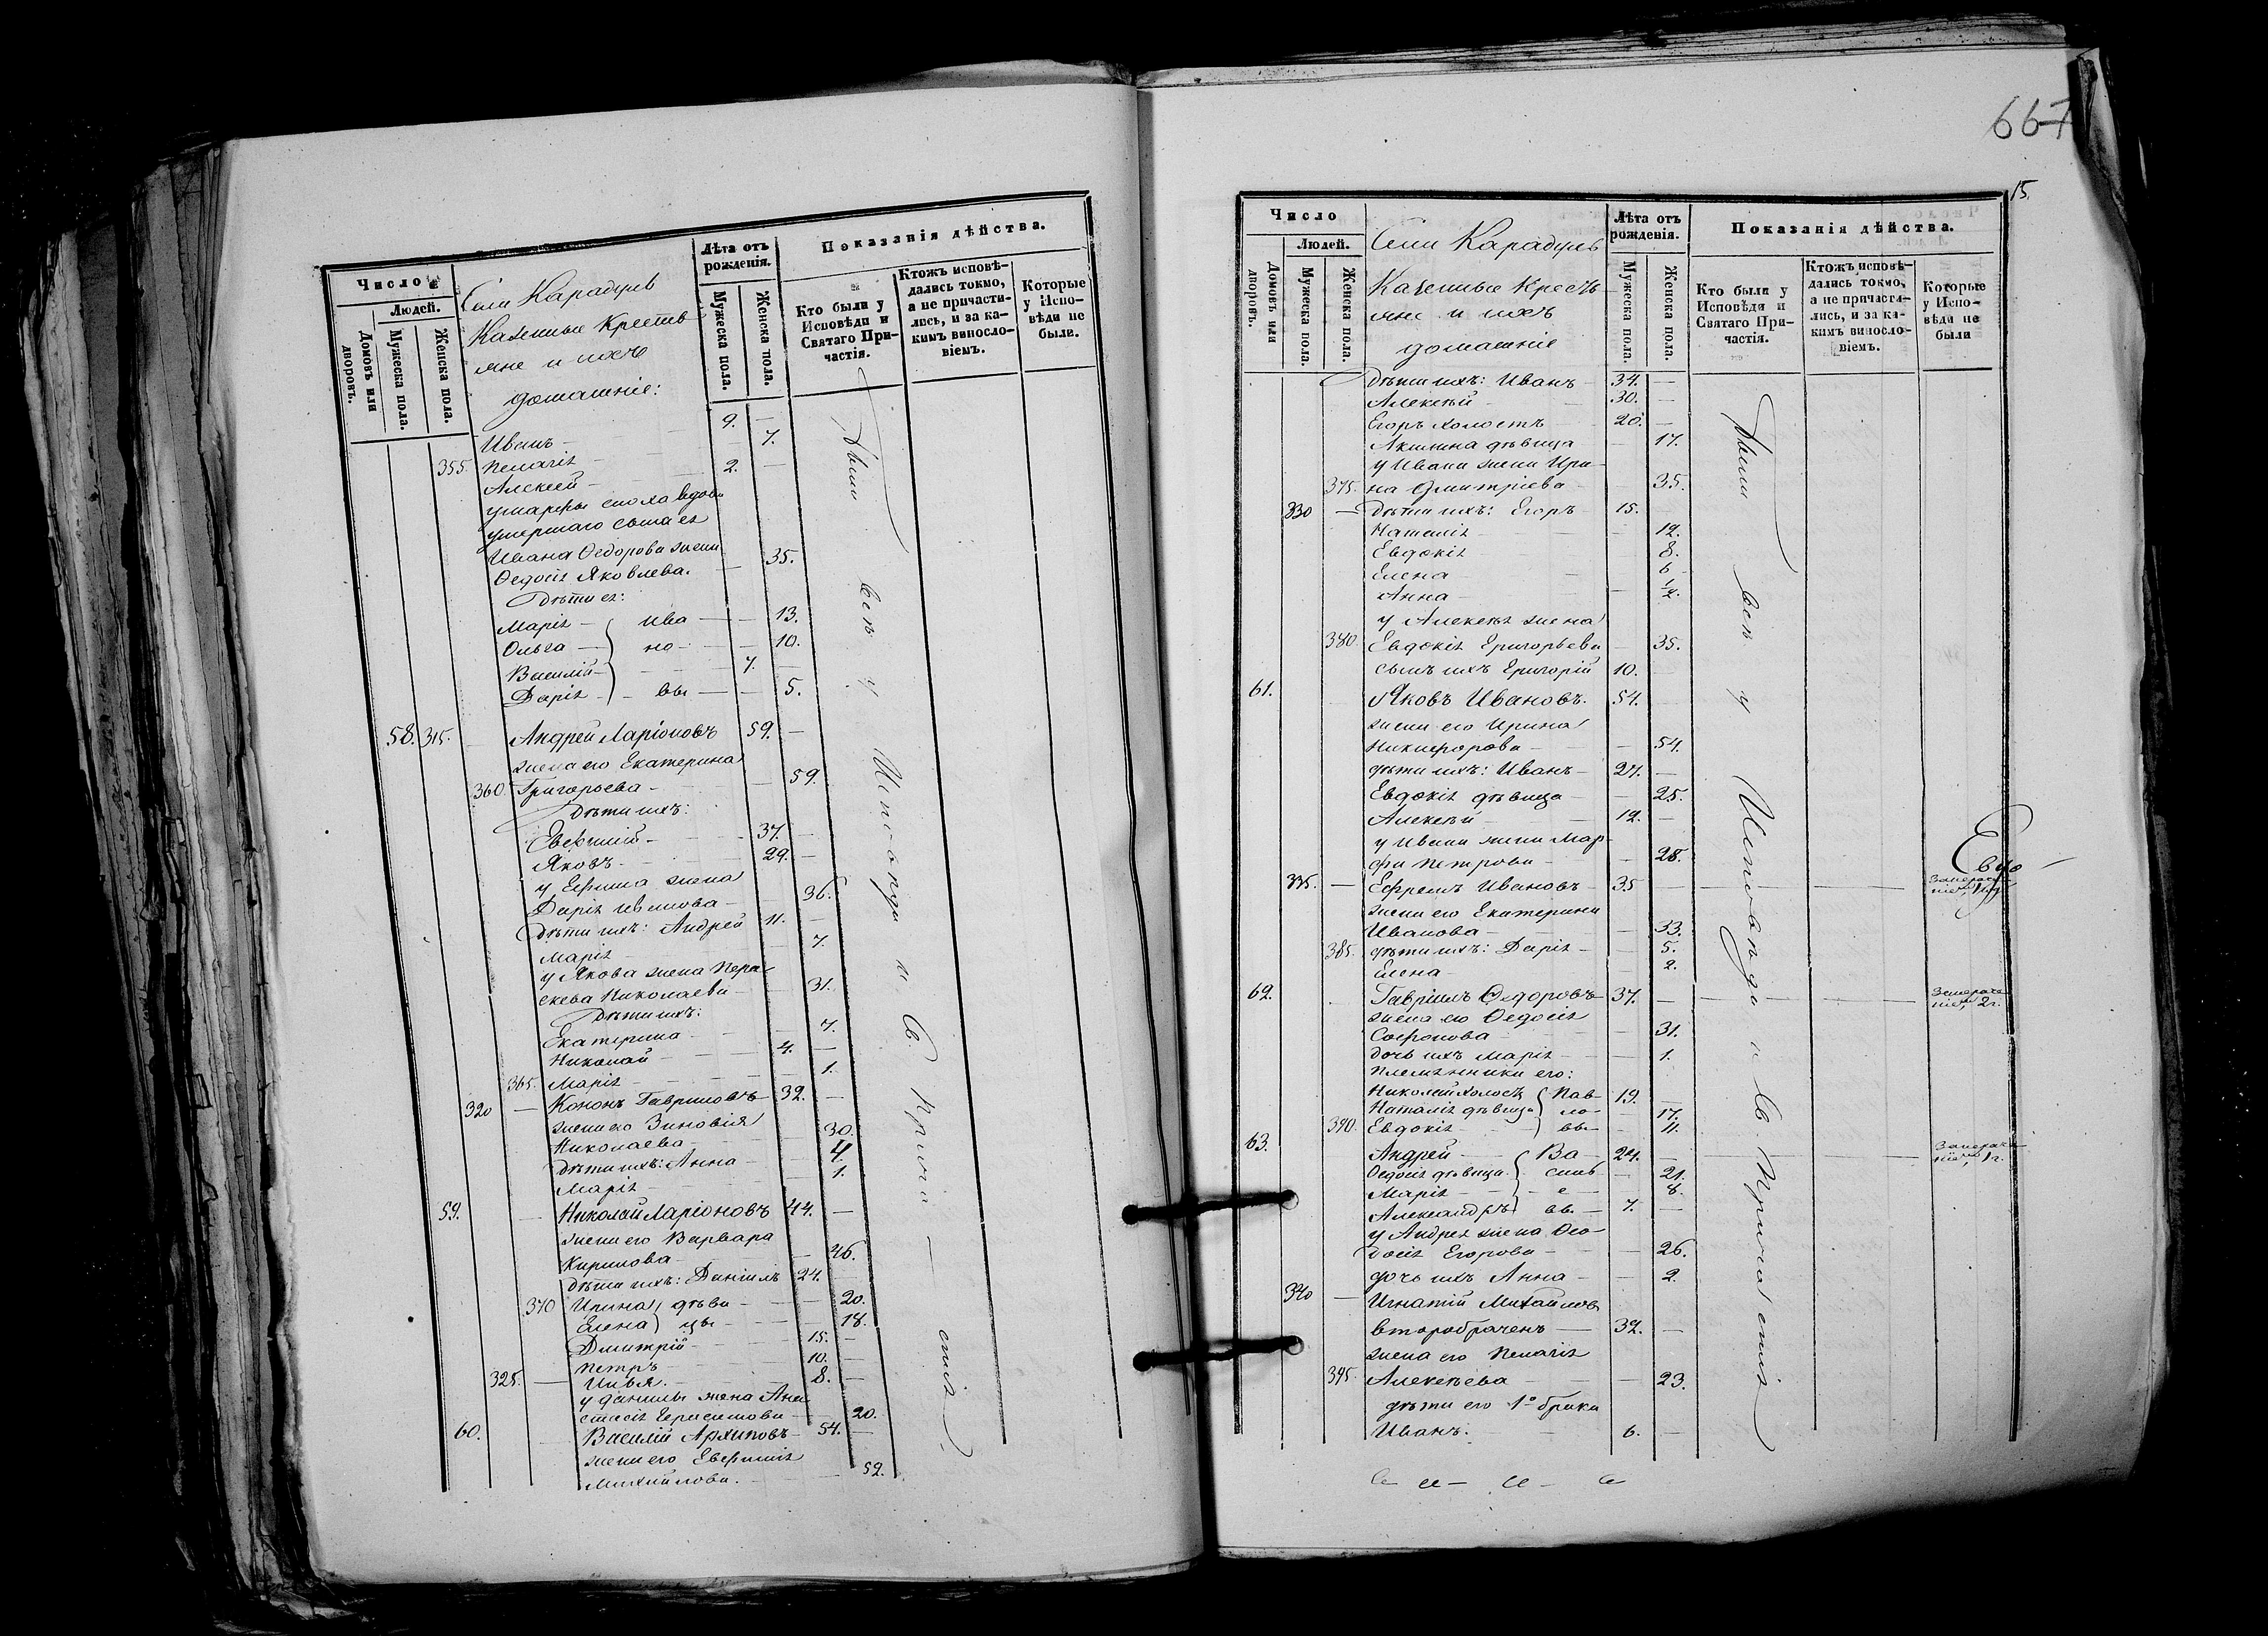 Число
Людей.
Домовъ или дворовъ.
Мужеска пола.
Женска пола.
Села Карадулъ
Казенные Крестья
яне и ихъ
домашніе:
Лѣта отъ рожденія.
Мужеска пола.
Женска пола.
Показанія дѣйства.
Кто были у Исповѣди и Святаго При-частія.
Ктожъ исповѣ-дались токмо, а не причасти-лись, и за ка-кимъ винослo-віемъ.
Которые у Испо-вѣди не были.
Иванъ — 9. —
355. Пелагія — 7.
Алексей — 2. —
умершаго сына ея
Ивана Ѳедорова жена
Ѳедосія Яковлева. — 35.
Дѣти ея:
Марія — Ива — 13.
Ольга — но — 10.
Василій — 7. —
Дарія — вы — 5.
58. 315. Андрей Ларіоновъ 59. —
жена его Екатерина
360 Григорьева — 59.
Дѣти ихъ:
Евфимій — 37. —
Яковъ — 29. —
у Ефима жена
Дарія Иванова — 36.
Дѣти ихъ: Андрей 11. —
Марія — 7.
у Якова жена Пера
скева Николаева — 31.
Дѣти ихъ:
Екатерина — 7.
Николай — 4. —
365. Марія — 1.
320 — Кононъ Гавриловъ 32. —
жена его Зиновія
Николаева — 30.
дѣти ихъ: Анна — 4
Марія — 1.
59. — Николай Ларіоновъ 44. —
жена его Варвара
Кирилова — 46.
дѣти ихъ: Даніилъ 24. —
370 Ирина дѣви — 20.
Елена цы — 18.
Дмитрій — 15. —
Петръ — 10. —
325. — Илья. — 8. —
у Данилы жена Ана
стасія Герасимова — 20.
60. Василій Архиповъ — 54. —
жена его Евфимія
Михайлова. — 52.
Были всѣ у Исповѣди и Св. Прича — стія.
667
15.
Число
Людей.
Домовъ или дворовъ.
Мужеска пола.
Женска пола.
Села Карадулъ
Казенные Кресть
яне и ихъ
домашніе
Лѣта отъ рожденія.
Мужеска пола.
Женска пола.
Показанія дѣйства.
Кто были у Исповѣди и Святаго При-частія.
Ктожъ исповѣ-дались токмо, а не причасти-лись, и за ка-кимъ винослo-віемъ.
Которые у Испо-вѣди не были
Дѣти ихъ: Иванъ — 34. —
Алексѣй — 30. —
Егоръ холостъ — 20. —
Акилина дѣвица — 17.
у Ивана жена Ири-
375. на Дмитріева — 35.
330 — Дѣти ихъ: Егоръ — 15. —
Наталія — 12.
Евдокія — 8.
Елена — 6
Анна — 1/2.
у Алексѣя жена
380. Евдокія Григорьева — 35.
сынъ ихъ Григорій 10. —
61. Яковъ Ивановъ. 54. —
жена его Ирина
Никифорова — 54.
дѣти ихъ: Иванъ — 27. —
Евдокія дѣвица — 25.
Алексѣй — 12. —
у Ивана жена Мар
фа Петрова — 28.
335. — Ефремъ Ивановъ — 35 —
жена его Екатерина
Иванова — 33.
385. дѣти ихъ: Дарія — 5.
Елена — 2.
62. Гавріилъ Ѳедоровъ 37. —
жена его Ѳедосія
Софронова — 31.
дочь ихъ Марія — 1.
Племянники его:
Николай холостъ Пав- 19. —
Наталія дѣвица ло — 17.
390. Евдокія — вы — 11.
63. Андрей — Ва — 24. —
Ѳедосія дѣвица силь — 21.
Марія — е — 8.
Александръ вы. — 7. —
у Андрея жена Ѳео-
досія Егорова — 26.
дочь ихъ Анна — 2.
340 — Игнатій Михайловъ
второбраченъ — 32. —
жена его Пелагія
395. Алексѣева — 23.
дѣти его 1о брака
Иванъ. — 6. —
Были всѣ у Исповѣди и Св. Причастія